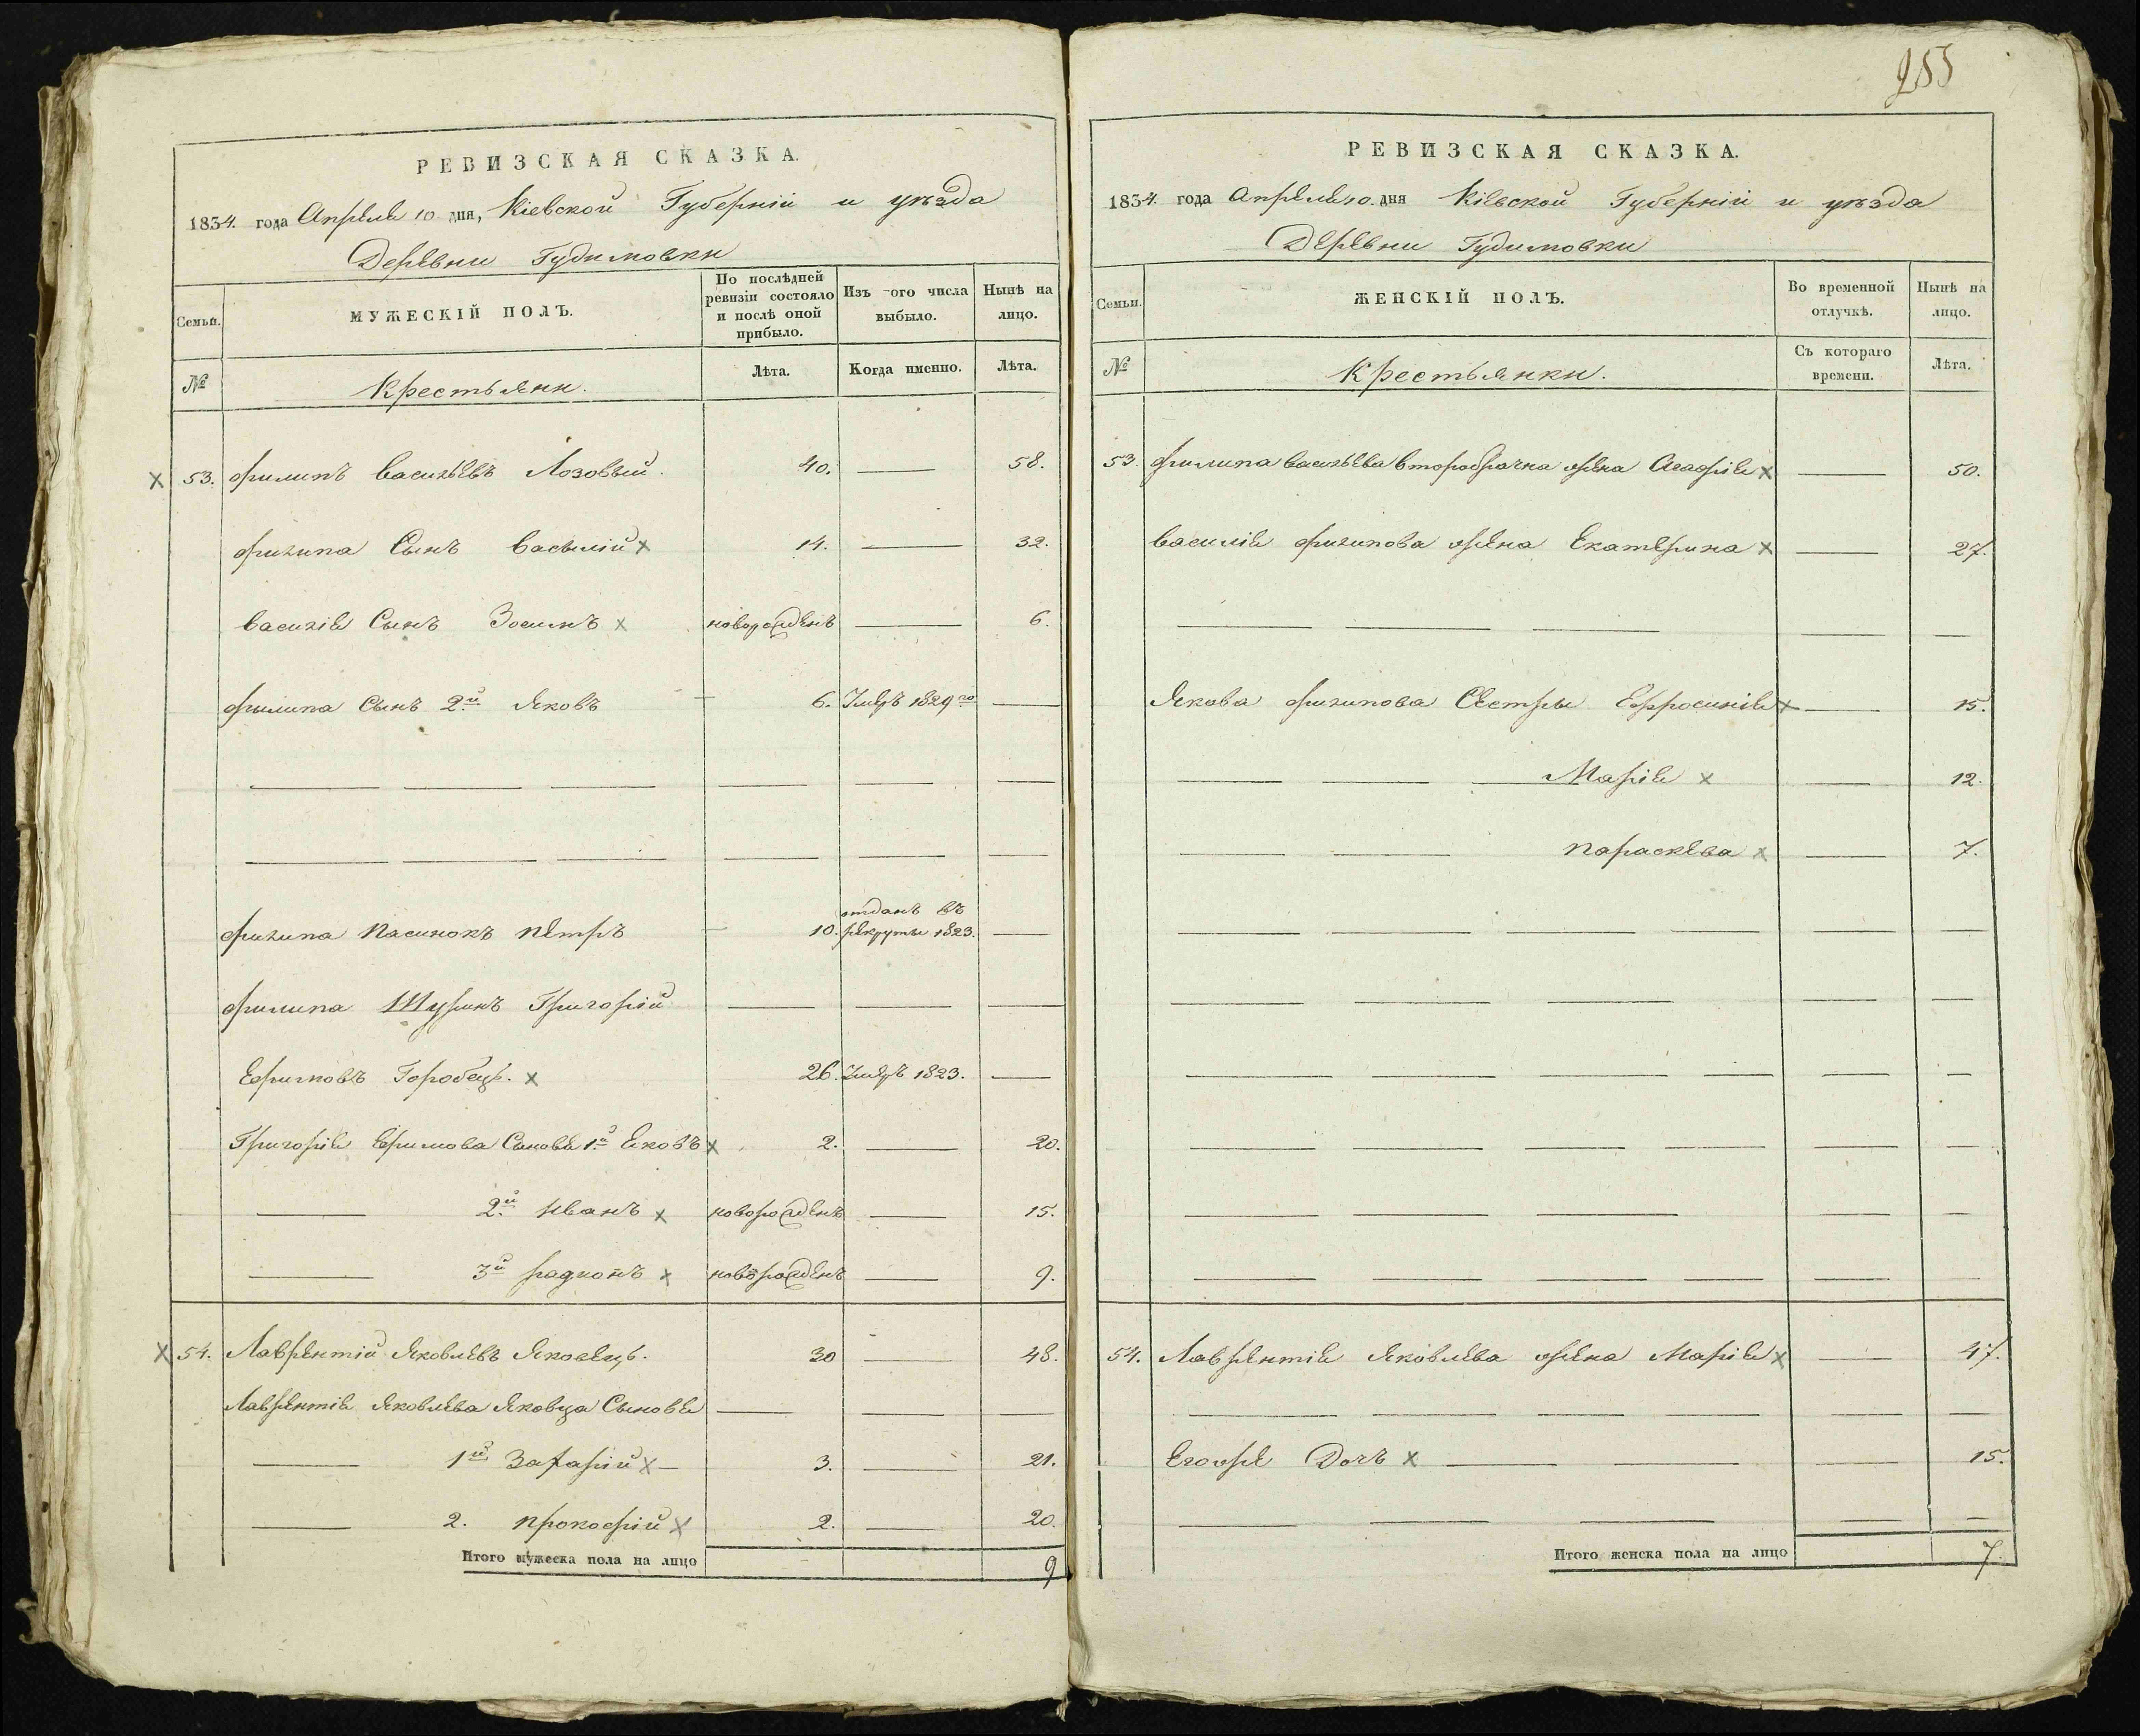 255
РЕВИЗСКАЯ СКАЗКА.
1834. года Апреля 10 дня, Кіевской Губерніи и уѣзда
Деревни Гудимовки
Семьи. МУЖЕСКІЙ ПОЛЪ. По послѣдней ревизіи состояло и послѣ оной прибыло. Изъ того числа выбыло. Нынѣ на лицо.
№ Крестьяни. Лѣта. Когда именно. Лѣта.
53. Филипъ Васильевъ Лозовый. 40. 58.
Филипа Сынъ Василій 14. 32.
Василія Сынъ Зосимъ новорожденъ 6.
Филипа Сынъ 2й Яковъ 6. Умеръ 1829го
Филипа Пасинокъ Петръ 10. отданъ въ рекруты 1823.
Филипа Шуринъ Григорій
Ефимовъ Горобецъ. 26. Умеръ 1823.
Григорія Ефимова Сыновья 1й Яковъ 2. 20.
2й Иванъ новорожденъ 15.
3й новорожденъ 9.
54. Лаврентій Яковлевъ Яковецъ. 30 48.
Лаврентія Яковлева Яковца Сыновья
1й Захарій 3. 21.
2. Прокофій 2. 20.
Итого мужеска пола на лицо 9
РЕВИЗСКАЯ СКАЗКА.
1834. года Апреля 10. дня Кіевской Губерніи и уѣзда
Деревни Гудимовки
Семьи. ЖЕНСКІЙ ПОЛЪ. Во временной отлучкѣ. Нынѣ на лицо.
№ Крестьянки. Съ котораго времени. Лѣта.
53. Филипа Васильева второбрачна жена Агафія 50.
Василія Филипова жена Екатерина 27.
Якова Филипова Сестры Ефросинія 15.
Марія 12.
Параскева 7.
54. Лаврентія Яковлева жена Марія 47.
Егоже Дочь 15.
Итого женска пола на лицо 7.